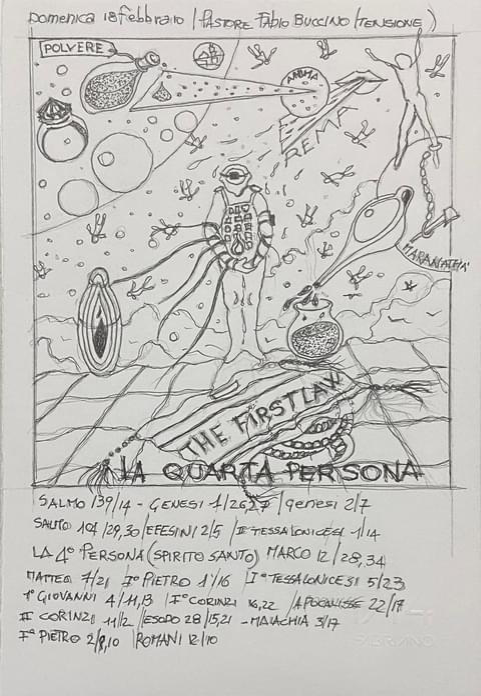 Domenica 18 Febbraio / PASTORE FABIO BUCCINO (TENSIONE)
POLVERE
ANIMA
REMA
MARANATHA'
THE FIRST LAW
LA QUARTA PERSONA
SALMO 139/14 - GENESI 1/26,27 / genesi 2/7
SALMO 104/29,30 / EFESINI 2/5 / II TESSALONICESI 1/14
LA 4° PERSONA (SPIRITO SANTO) MARCO 12/28,34
MATTEO 7/21 I° PIETRO 1/16 / I° TESSALONICESI 5/23
1° GIOVANNI 4/11,13 / I° CORINZI 16,22 / APOCALISSE 22/17
II CORINZI 11/2 / ESODO 28/15,21 - MALACHIA 3/17
I° PIETRO 2/8,10 / ROMANI 12/10
FABRIANO